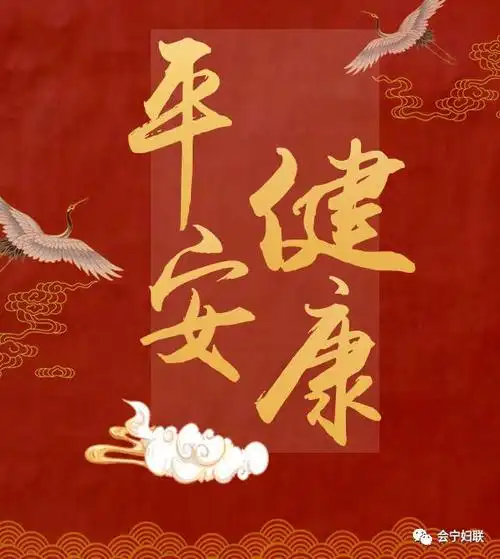 平安
健康
会宁妇联